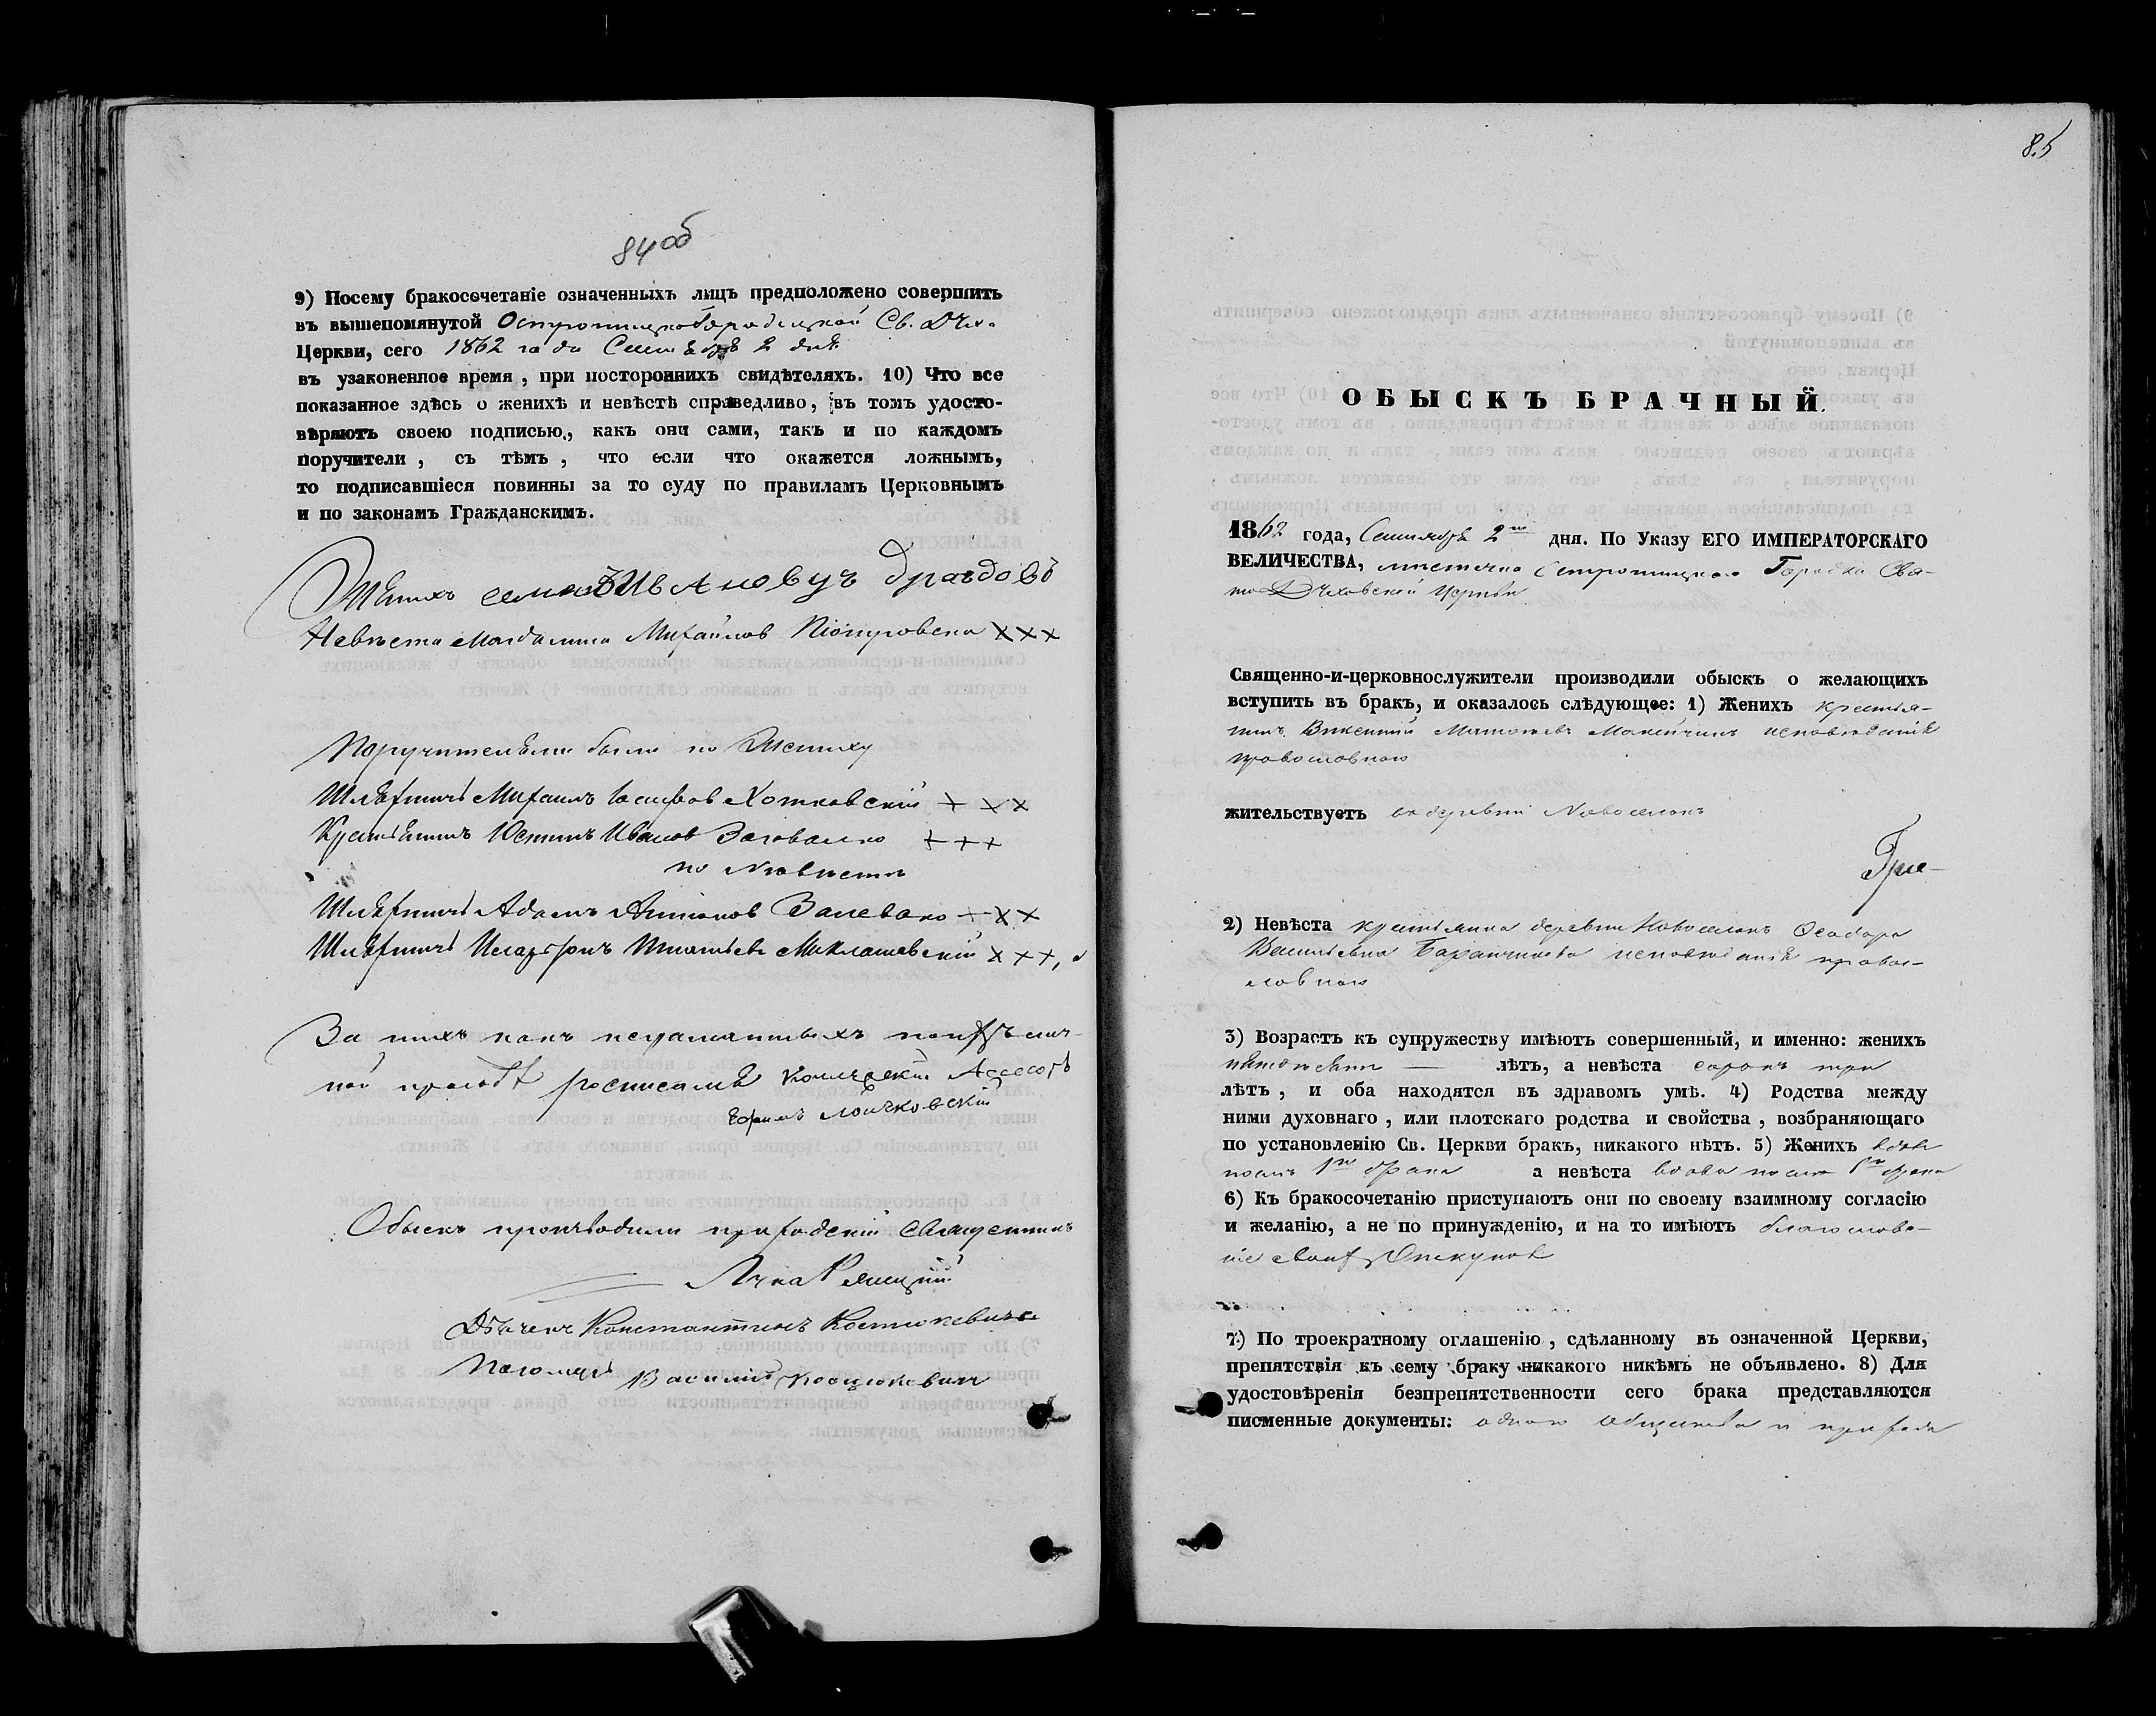 84об
9) Посему бракосочетаніе означенныхъ лицъ предположено совершить
въ вышепомянутой Остромицкогородецкой Св. Дух.
Церкви, сего 1862 года Сентября 2 дня
въ узаконенное время, при постороннихъ свидѣтеляхъ. 10) Что все
показанное здѣсь о женихѣ и невѣстѣ справедливо, въ томъ удосто-
вѣряютъ своею подписью, какъ они сами, такъ и по каждомъ
поручители, съ тѣмъ, что если что окажется ложнымъ,
то подписавшіеся повинны за то суду по правиламъ Церковнымъ
и по законамъ Гражданскимъ.
Женихъ Ивановъ
Невѣста Магдалина Михайлова Піотровска ххх
Поручителями были по Жениху
Шляхтичъ Михаилъ Іосифов Хотковскій + х х
Крестьянинъ Юстинъ Иванов + + +
по Невѣстѣ
Шляхтичъ Адамъ Антонов + х х
Шляхтичъ Игнатьев Миклашевскій х х +,
За нихъ какъ неграмотныхъ по ихъ лич-
ной прозьбѣ росписалъ Ассесоръ
Обыскъ производили приходскій Священникъ
Лука
Дьячекъ Константинъ Костюкевичъ
Пономарь Василій Косцюкевичъ
85
ОБЫСКЪ БРАЧНЫЙ.
1862 года, Сентября 2го дня. По Указу ЕГО ИМПЕРАТОРСКАГО
ВЕЛИЧЕСТВА, мѣстечка Городка Свя-
то Духовской Церкви
Священно-и-церковнослужители производили обыскъ о желающихъ
вступить въ бракъ, и оказалось слѣдующее: 1) Женихъ крестья-
нинъ Викентій исповѣданія
православнаго
жительствуетъ въ деревнѣ Новоселкахъ
2) Невѣста крестьянка деревни Новоселокъ Ѳеодора
Васильевна исповѣданія правос-
лавнаго
3) Возрастъ къ супружеству имѣютъ совершенный, и именно: женихъ
— лѣтъ, а невѣста сорокъ три
лѣтъ, и оба находятся въ здравомъ умѣ. 4) Родства между
ними духовнаго, или плотскаго родства и свойства, возбраняющаго
по установленію Св. Церкви бракъ, никакого нѣтъ. 5) Женихъ вдовъ
послѣ 1го брака а невѣста вдова послѣ 1го брака
6) Къ бракосочетанію приступаютъ они по своему взаимному согласію
и желанію, а не по принужденію, и на то имѣютъ благослове-
ніе своихъ Опекуновъ
7) По троекратному оглашенію, сдѣланному въ означенной Церкви,
препятствія къ сему браку никакого никѣмъ не объявлено. 8) Для
удостовѣренія безпрепятственности сего брака представляются
писменные документы: одного общества и прихода